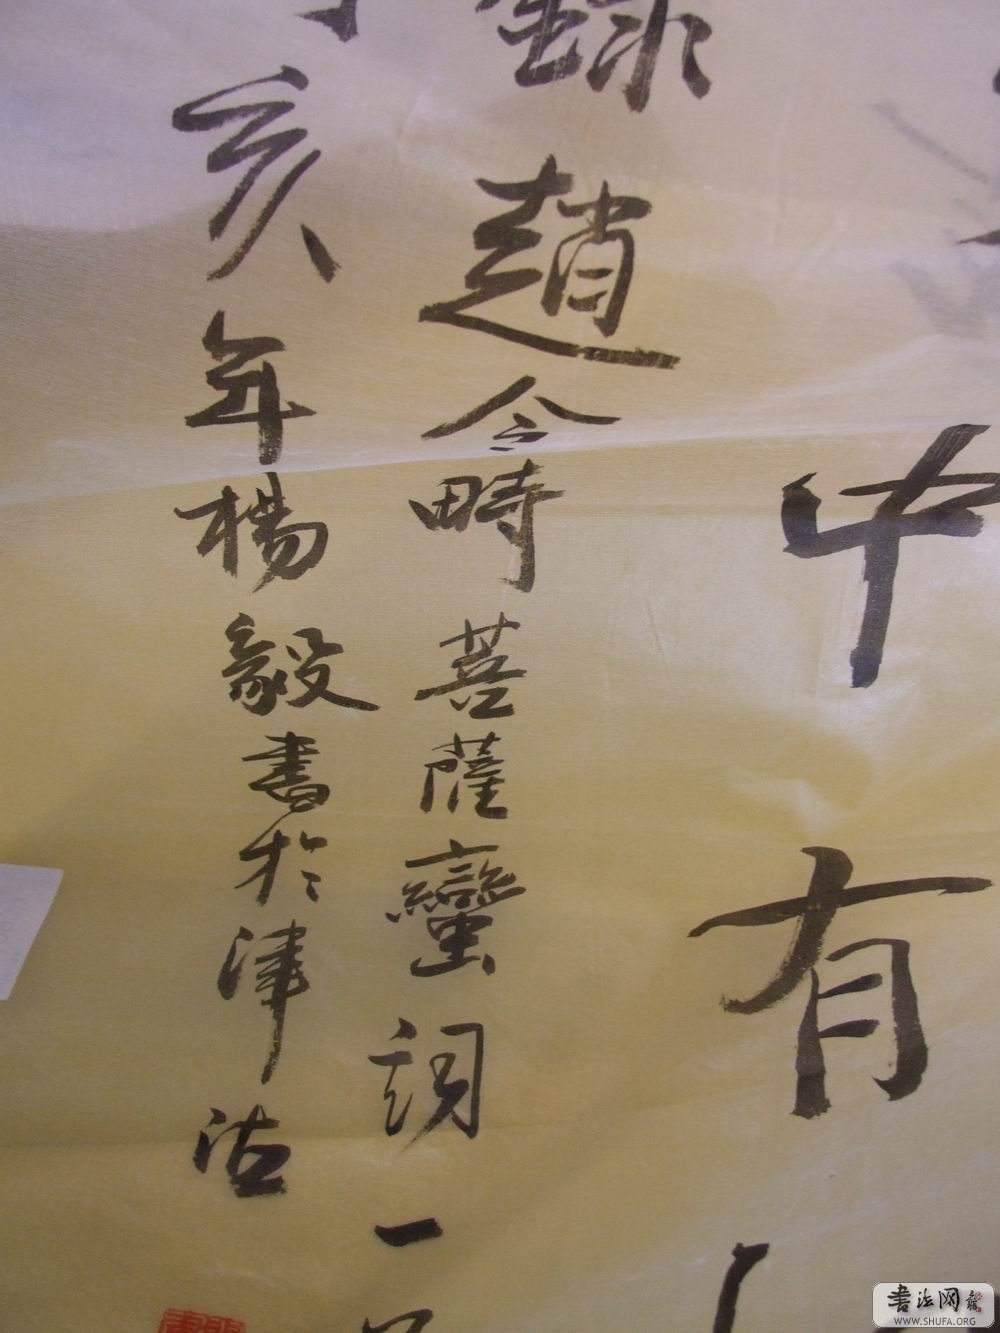 中有
錄趙令畤菩薩蠻詞一
亥年楊毅書於津沽
書法网
WWW.SHUFA.ORG